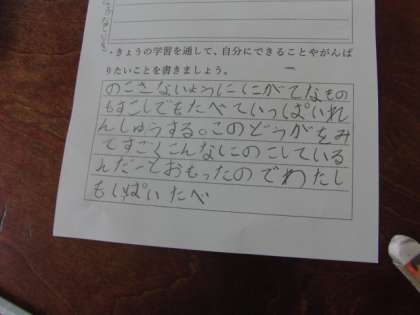 ・きょうの学習を通して、自分にできることやがんば
りたいことを書きましょう。
のこさないようににがてなもの
もすこしでもたべていっぱいれ
んしゅうする。このどうがをみ
てすごくこんなにのこしている
んだーておもったのでわたし
もいぱいたべ